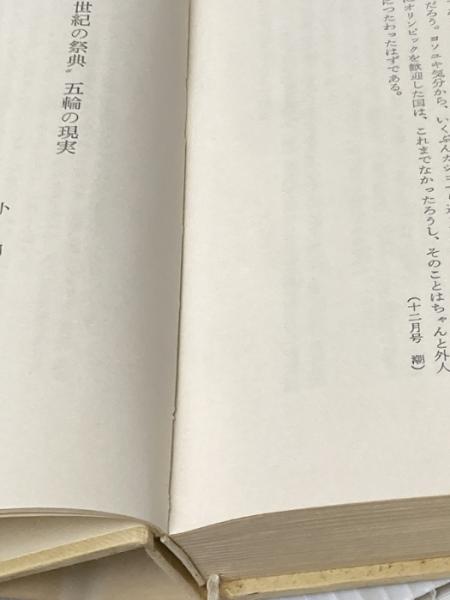 だろう。ヨソユキ気分から、いくぶんカジ
にオリンピックを歓迎した国は、これまでなかったろうし、そのことはちゃんと外人
につたわったはずである。
(十二月号 潮)
世紀の祭典〟五輪の現実
小